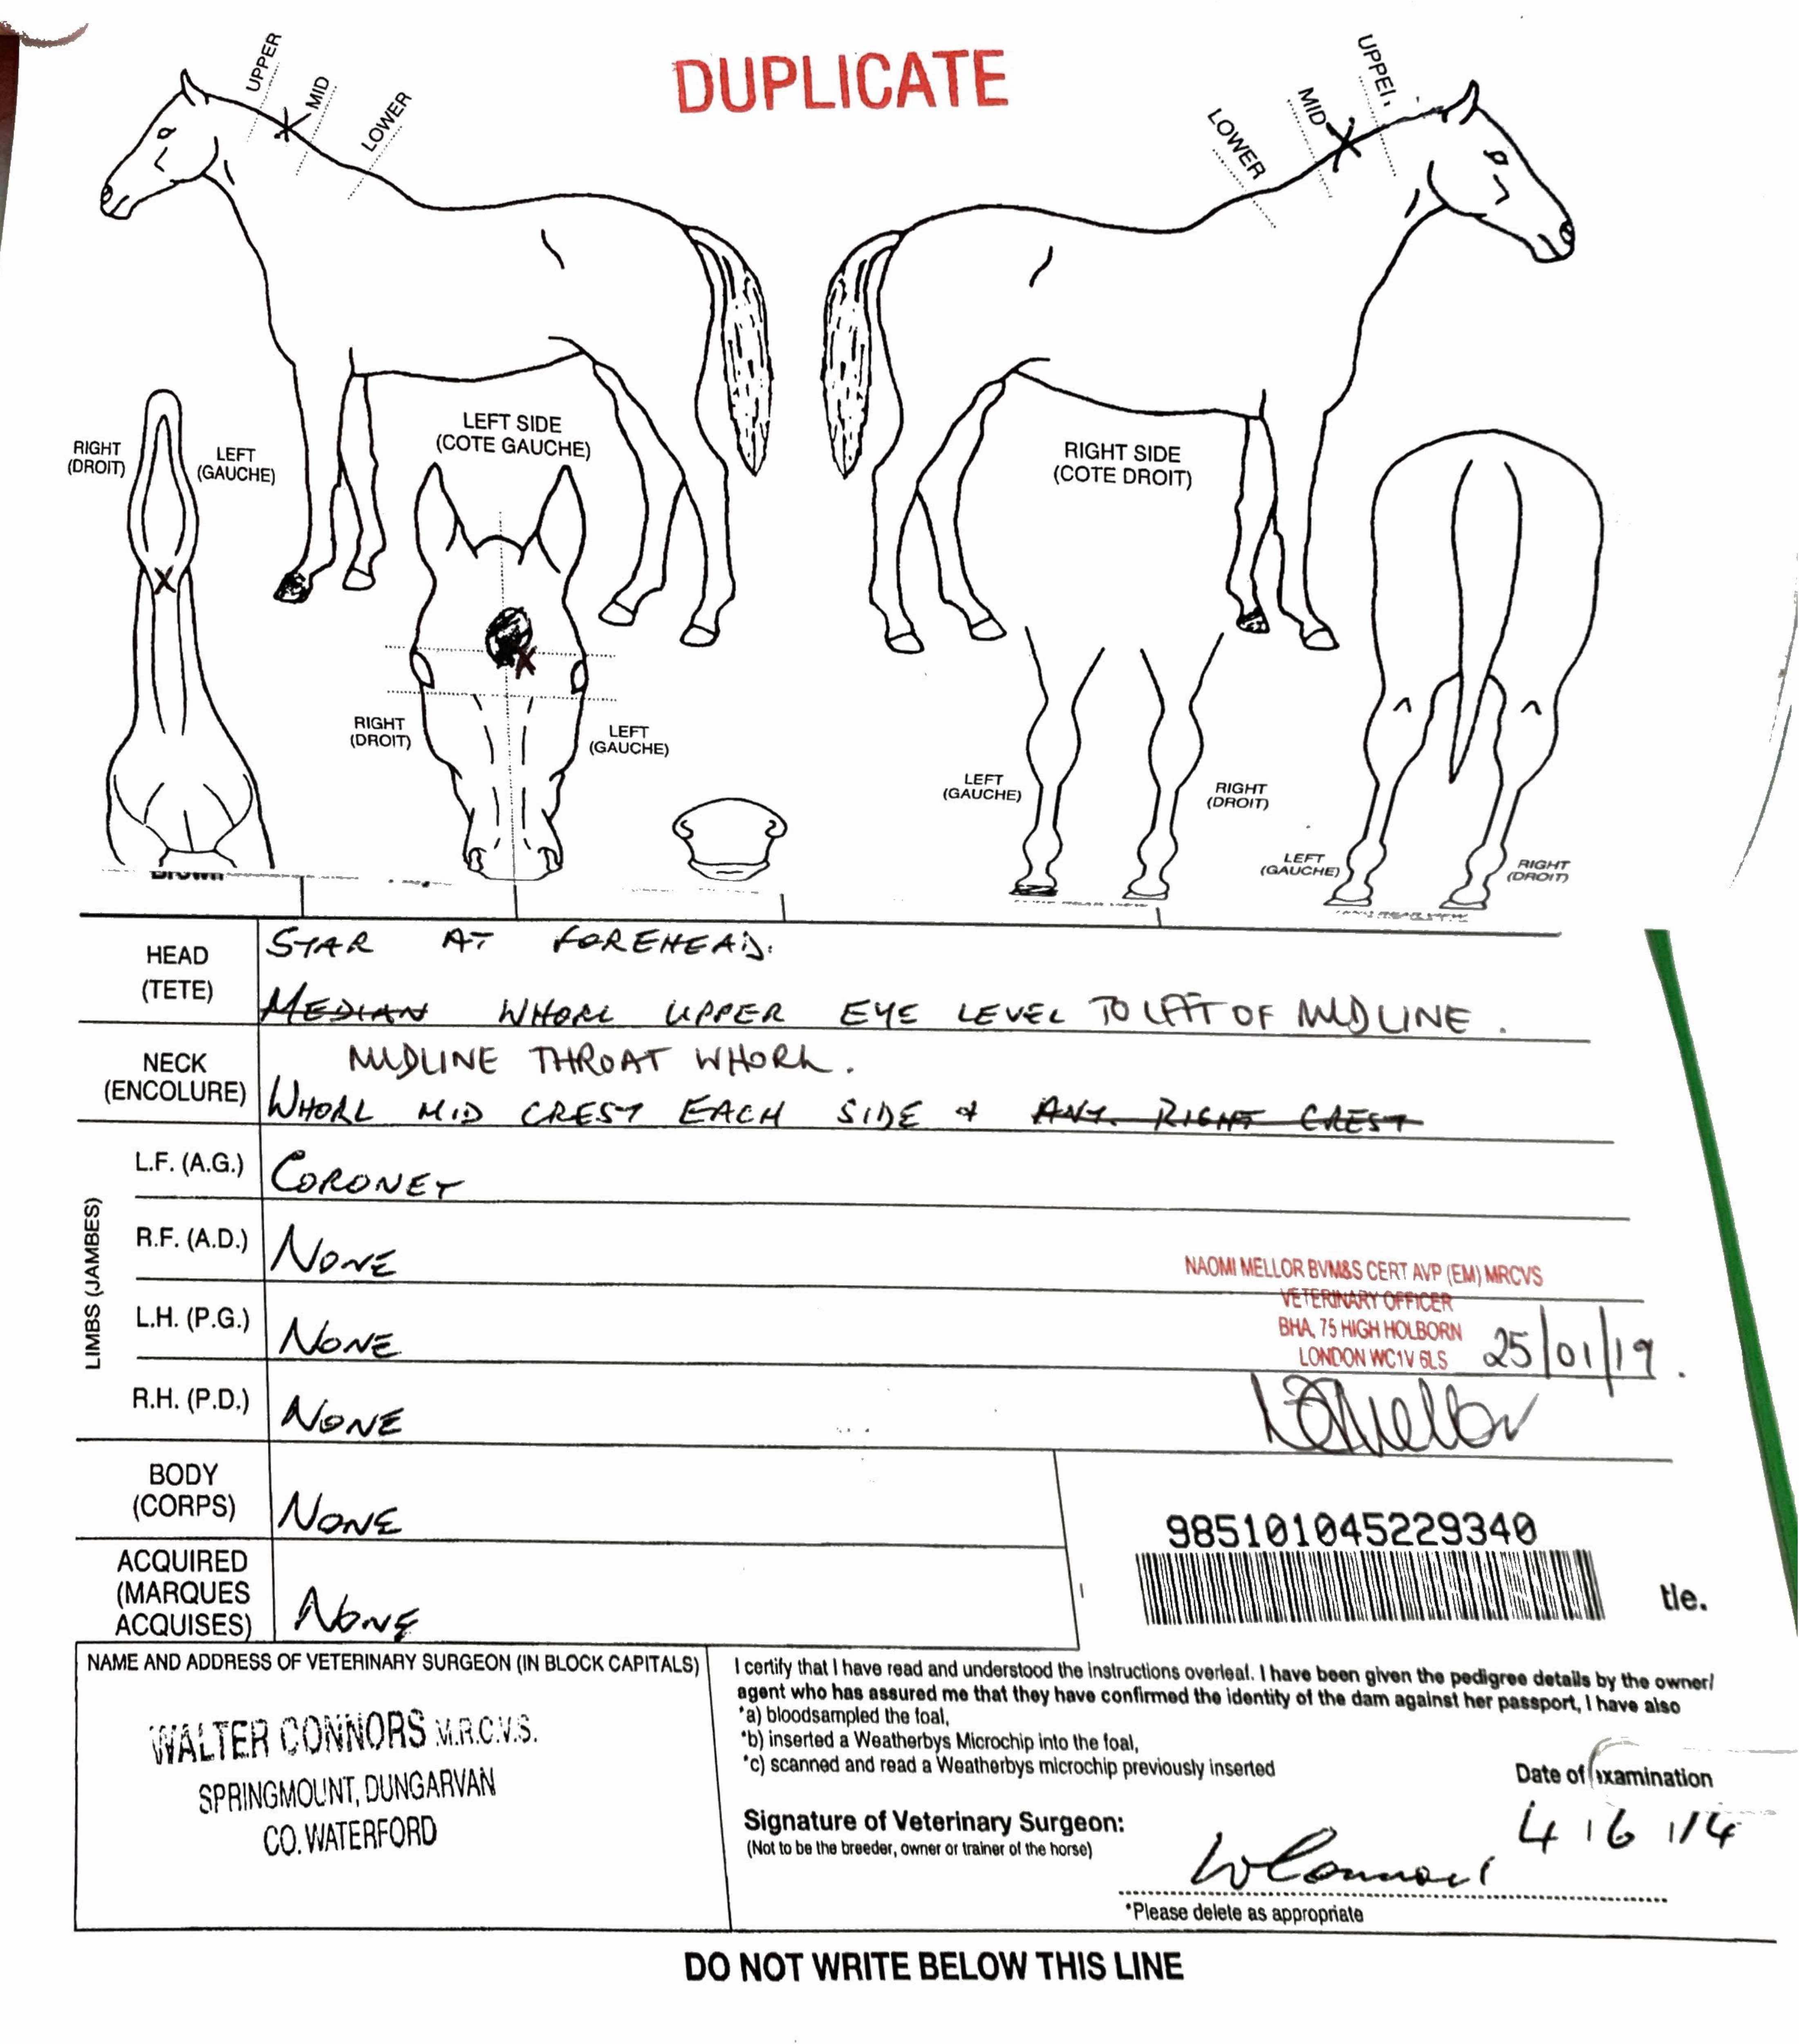 DUPLICATE
UPPER
MID
LOWER
LOWER
MID
UPPER
LEFT SIDE
(COTE GAUCHE)
RIGHT SIDE
(COTE DROIT)
RIGHT
(DROIT)
LEFT
(GAUCHE)
RIGHT
(DROIT)
LEFT
(GAUCHE)
LEFT
(GAUCHE)
RIGHT
(DROIT)
LEFT
(GAUCHE)
RIGHT
(DROIT)
Brown
HEAD
(TETE)
STAR AT FOREHEAD.
MEDIAN WHORL UPPER EYE LEVEL TO LEFT OF MIDLINE.
NECK
(ENCOLURE)
MIDLINE THROAT WHORL.
WHORL MID CREST EACH SIDE & ANT. RIGHT CREST
LIMBS (JAMBES)
L.F. (A.G.) CORONET
R.F. (A.D.) NONE
L.H. (P.G.) NONE
R.H. (P.D.) NONE
NAOMI MELLOR BVM&S CERT AVP (EM) MRCVS
VETERINARY OFFICER
BHA, 75 HIGH HOLBORN
LONDON WC1V 6LS
25/01/19.
BODY
(CORPS)
NONE
ACQUIRED
(MARQUES
ACQUISES)
NONE
985101045229340
tle.
NAME AND ADDRESS OF VETERINARY SURGEON (IN BLOCK CAPITALS)
WALTER CONNORS M.R.C.V.S.
SPRINGMOUNT, DUNGARVAN
CO. WATERFORD
I certify that I have read and understood the instructions overleaf. I have been given the pedigree details by the owner/
agent who has assured me that they have confirmed the identity of the dam against her passport, I have also
*a) bloodsampled the foal,
*b) inserted a Weatherbys Microchip into the foal,
*c) scanned and read a Weatherbys microchip previously inserted
Date of examination
4 16 1/4
Signature of Veterinary Surgeon:
(Not to be the breeder, owner or trainer of the horse)
W Connors
*Please delete as appropriate
DO NOT WRITE BELOW THIS LINE